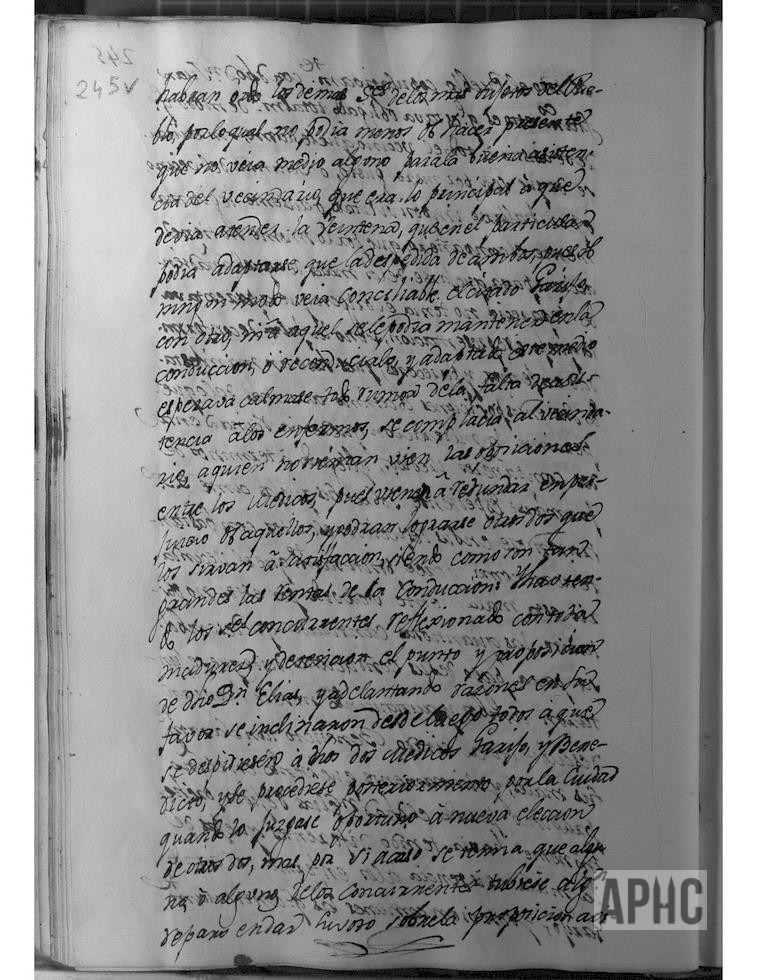 245v
habian oydo los demas Sres de los mas visoros del Pue-
blo, por lo qual no podia menos de hacer presente
que no veia medio alguno para la buena asisten-
cia del vecindario, que era lo principal à que
devia atender la Veintena, que en el particular
podia adaptarse, que la despedida de ambos, pues de
ningun modo veia conciliable el citado Garise
con otro, ni â aquel se le podia mantener en la
conduccion, ò reconducirle, y adaptada este medio
esperava calmase todo rumor de la falta de asis-
tencia a los enfermos, se complacia al vecinda-
rio, a quien no venian vien las oposiciones
entre los Medicos, pues vienen â redundar en per-
juicio de aquellos, y podrian lograrse otros dos que
los sirvan â satisfaccion, siendo como son tan
grandes las rentas de la Conduccion:
los Sres concurrentes reflexionado con toda
madurez, y detencion el punto y proposicion
de dho Dn Elias, y adelantando razones en su
favor se inclinaron desde luego todos à que
se despidiesen à dhos dos Medicos Garise, y Bene-
dicto, y se procediese posteriormente por la Ciudad
quando lo juzgase oportuno à nueva eleccion
de otros dos, mas por si acaso se temia que algu-
no, ò algunos de los Concurrentes tubiese algun
reparo en dar su voto sobre la proposicion
APHC